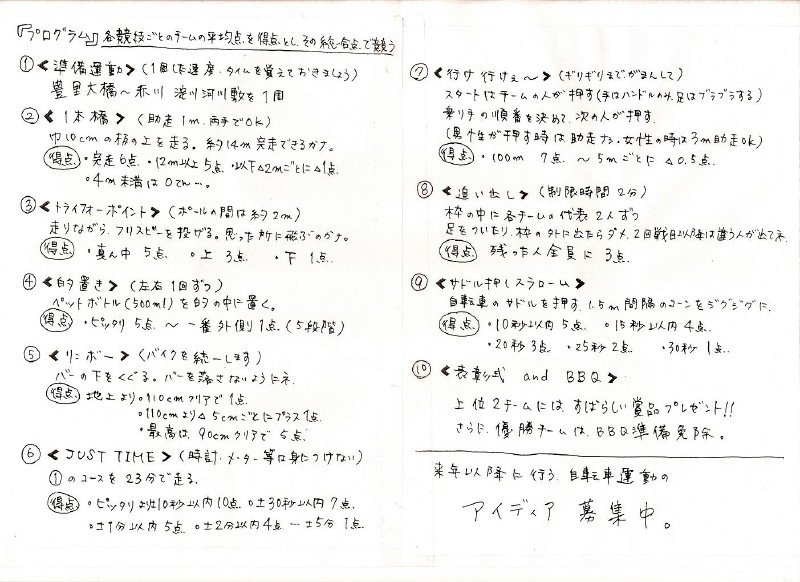 『プログラム』 各競技ごとのチームの平均点を得点とし、その総合点で競う
① <準備運動> (1回した速度・タイムを覚えておきましょう)
豊里大橋～赤川 淀川河川敷を1周
② <1本橋> (助走1m.両手でOK)
巾10cmの板の上を走る。約14m完走できるかナ。
得点 ・完走6点 ・12m以上5点 ・以下△2mごとに△1点
・4m未満は0てん…。
③ <トライフォーポイント> (ポールの間は約2m)
走りながら、フリスビーを投げる。思った所に飛ぶのかナ。
得点 ・真ん中 5点 ・上 3点 ・下 1点.
④ <的置き> (左右1回ずつ)
ペットボトル(500ml)を的の中に置く。
得点 ・ピッタリ5点 ～ 一番外側1点(5段階)
⑤ <リンボー> (バイクを統一します)
バーの下をくぐる。バーを落さないようにネ.
得点 地上より・110cmクリアで1点
・110cmより△5cmごとにプラス1点
・最高は、90cmクリアで 5点.
⑥ <JUST TIME> (時計・メーター等は身につけない)
①のコースを23分で走る.
得点 ・ピッタリより±10秒以内10点 ・±30秒以内7点
・±1分以内5点 ・±2分以内4点 ー±5分 1点.
⑦ <行け 行けぇ～> (ギリギリまでがまんして)
スタートはチームの人が押す(手はハンドル以外.足はブラブラする)
乗り手の順番を決めて、次の人が押す.
(男性が押す時は助走ナシ.女性の時は3m助走OK)
得点 ・100m 7点 ～5mごとに△0.5点.
⑧ <追い出し> (制限時間2分)
枠の中に各チームの代表2人ずつ
足をついたり、枠の外に出たらダメ.2回戦目以降は違う人が出てネ.
得点 残った人全員に3点.
⑨ <サドル押しスラローム>
自転車のサドルを押す.1.5m間隔のコーンをジグジグに.
得点 ・10秒以内5点 ・15秒以内4点.
・20秒3点 ・25秒2点 ・30秒1点.
⑩ <表彰式 and BBQ>
上位2チームには、すばらしい賞品プレゼント!!
さらに、優勝チームは、BBQ準備免除。
来年以降に行う、自転車運動の
アイディア 募集中。